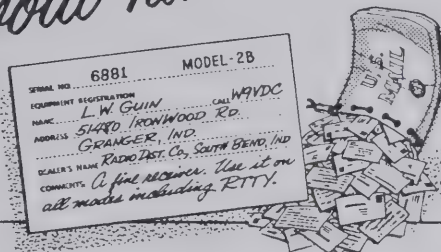 SERIAL NO. 6881 MODEL-2B
EQUIPMENT REGISTRATION
NAME L. W. GUIN CALL W9VDC
ADDRESS 51480 IRONWOOD RD.
GRANGER, IND.
DEALER'S NAME RADIO DIST. CO., SOUTH BEND, IND
COMMENTS A fine receiver. Use it on
all modes including RTTY.
U.S.
MAIL